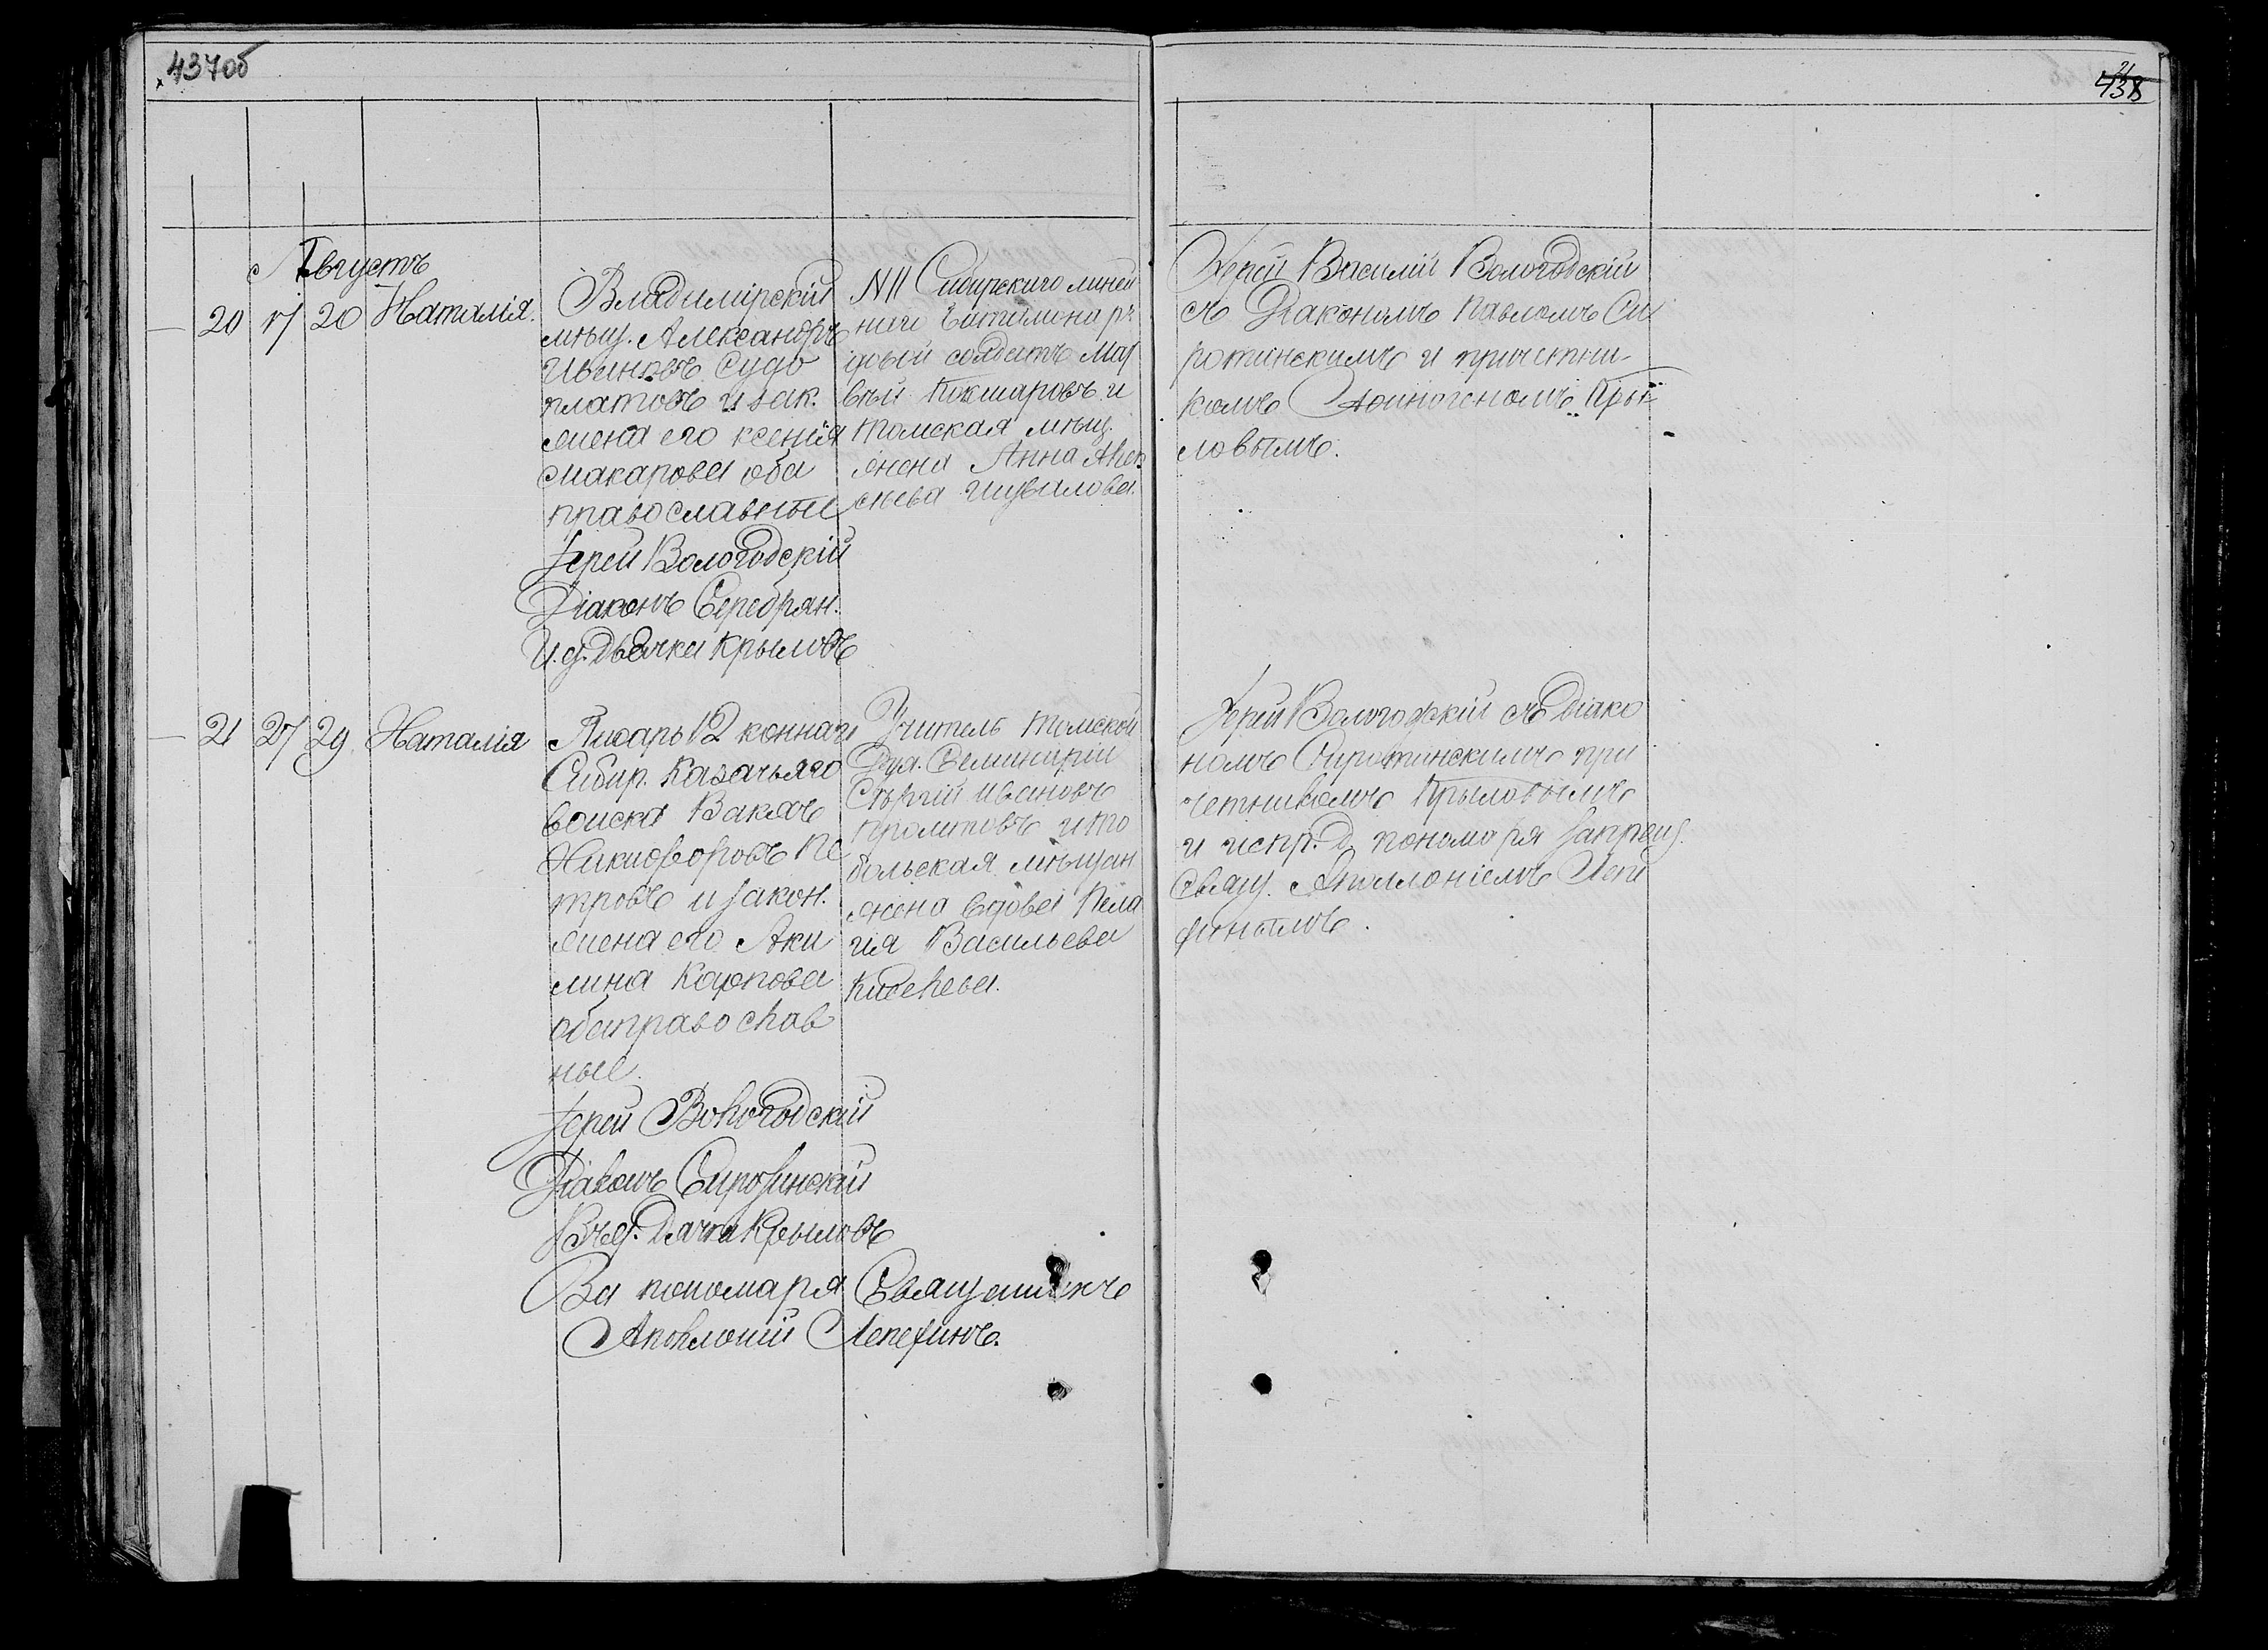 437об
438
21
Августъ
20 17 20 Наталія.
Владимірскій
мѣщ. Александръ
Ивановъ Судо
платовъ и зак.
жена его Ксенія
Макарова оба
православные
Іерей Вологодскій
Діаконъ Серебрян.
И. д. Дьячка Крыловъ
N11 Сибирскаго линей
наго баталіона ря
довой солдатъ Мат
вѣй Кокшаровъ и
Томская мѣщ.
жена Анна Алек
сѣева Шувалова.
Іерей Василій Вологодскій
съ Діакономъ Павломъ Си
ротинскимъ и причетни
комъ Аѳиногеномъ Кры
ловымъ.
21 27 29 Наталія
Писарь 12 коннаго
Сибир. Казачьяго
войска
Никифоровъ Пе
тровъ и закон.
жена его Аки
лина Карпова
оба православ
ные.
Іерей Вологодскій
Діаконъ Сиротинскій
Дьячка Крыловъ
За пономаря Священникъ
Аполлоній Лепехинъ.
Учитель Томской
Дух. Семинаріи
Сергій Ивановъ
и то
больская мѣщан
жена вдова Пела
гія Васильева
Киселева.
Іерей Вологодскій съ Діако
номъ Сиротинскимъ при
четникомъ Крыловымъ
и испр. д. пономаря запрещ.
Свящ. Аполлоніемъ Лепе
хинымъ.